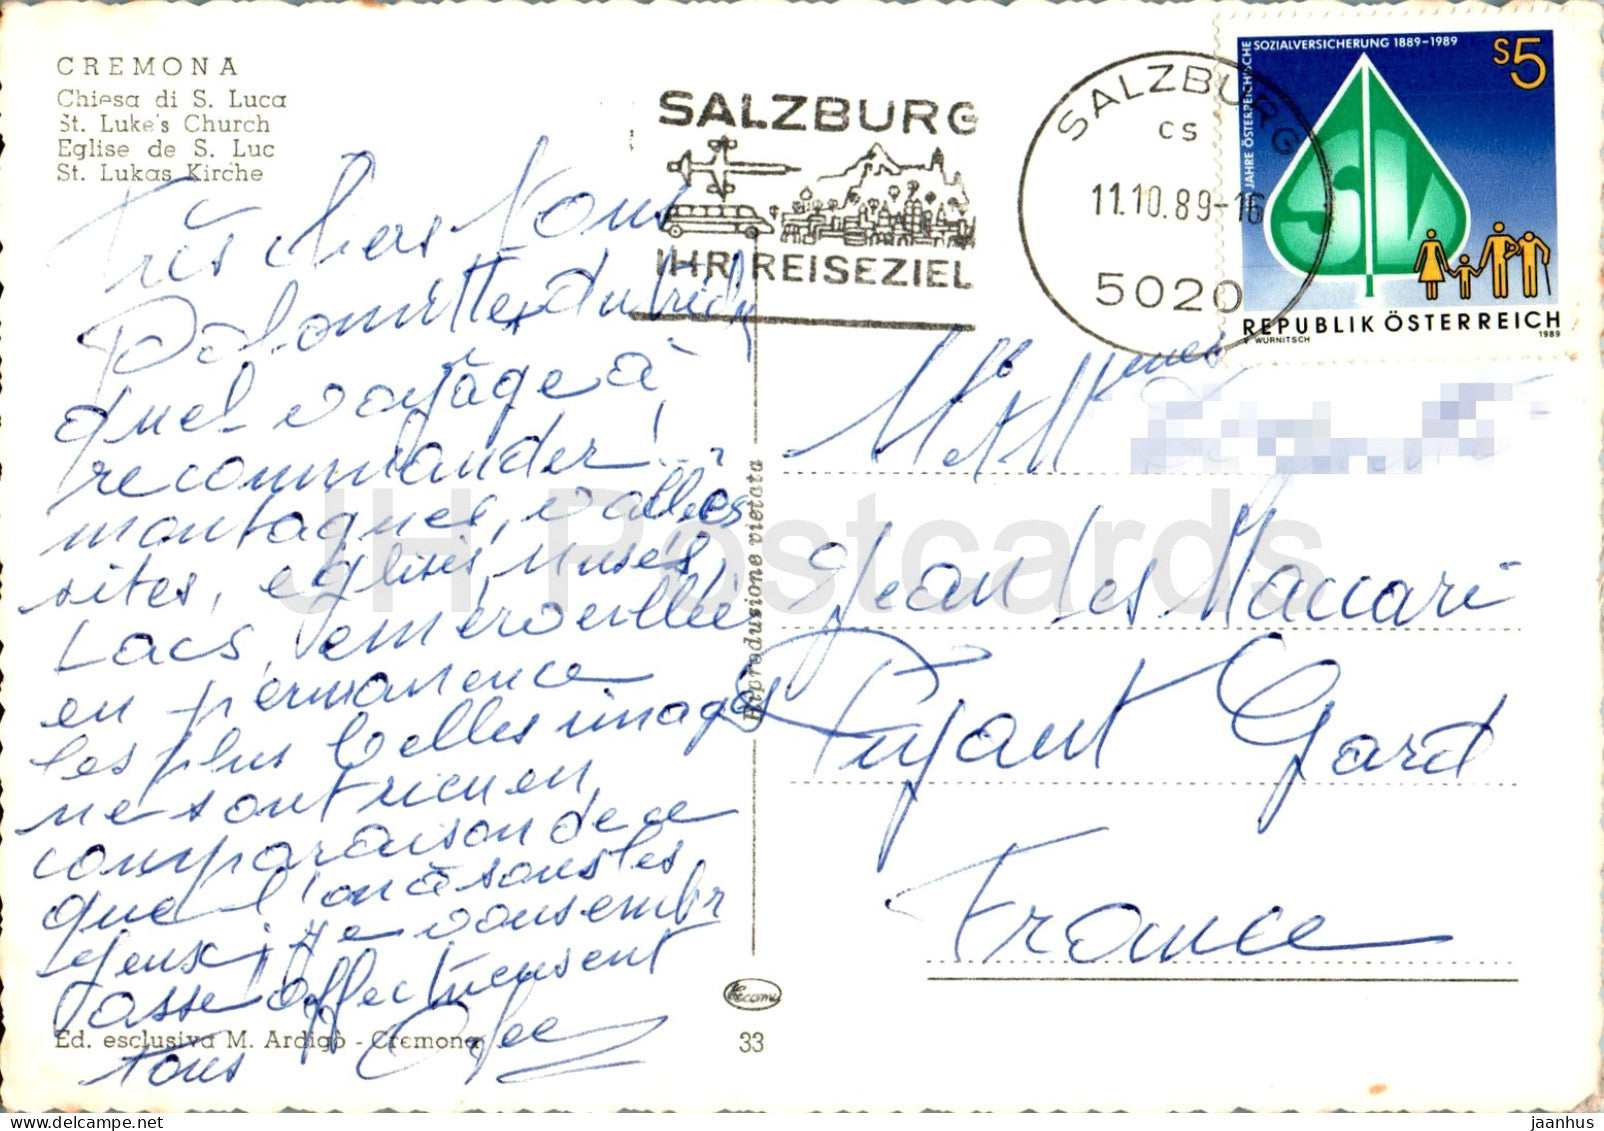 CREMONA
Chiesa di S. Luca
St. Luke's Church
Eglise de S. Luc
St. Lukas Kirche
SALZBURG
IHR REISEZIEL
SALZBURG
CS
11.10.89-16
5020
100 JAHRE ÖSTERREICHISCHE
SOZIALVERSICHERUNG 1889-1989
S5
SV
REPUBLIK ÖSTERREICH
V. WÜRNITSCH
1989
Très chers tous
Dolomittes du
quel voyage à
recommander!
montagnes, vallées
sites, eglises, musés,
Lacs, emerveillé
en permanence
les plus belles images
ne sont rien en
comparaison de ce
que l'on à sous les
yeux; je vous embr
asse affectueusement
tous
Reproduzione vietata
Jean Les Maccari
Pujaut Gard
France
Ed. esclusiva M. Ardigò - Cremona
33
JH Postcards
www.delcampe.net
jaanhus